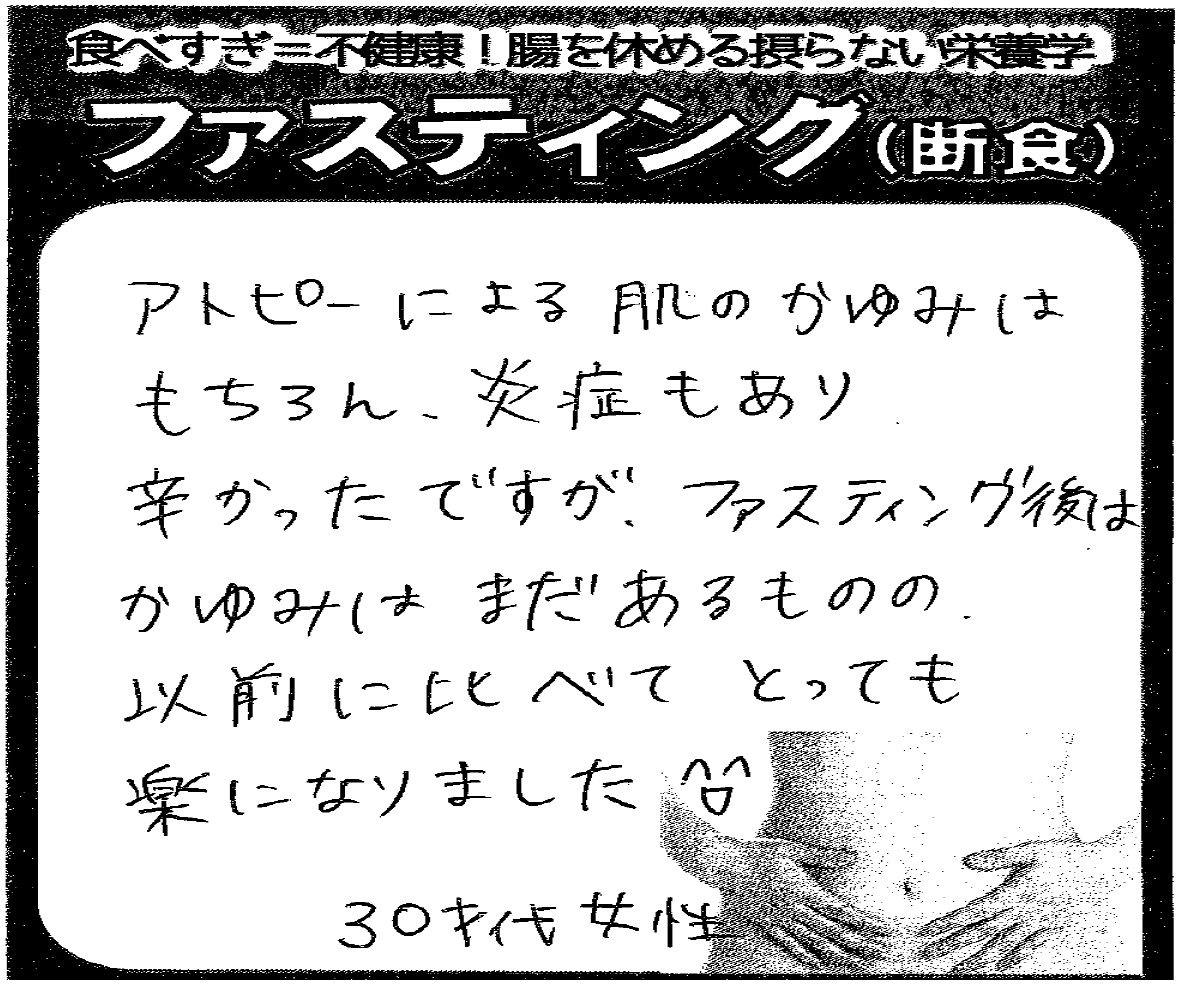 食べすぎ=不健康!腸を休める摂らない栄養学
ファスティング(断食)
アトピーによる肌のかゆみは
もちろん、炎症もあり
辛かったですが、ファスティング後は
かゆみはまだあるものの、
以前に比べてとっても
楽になりました
30才代女性